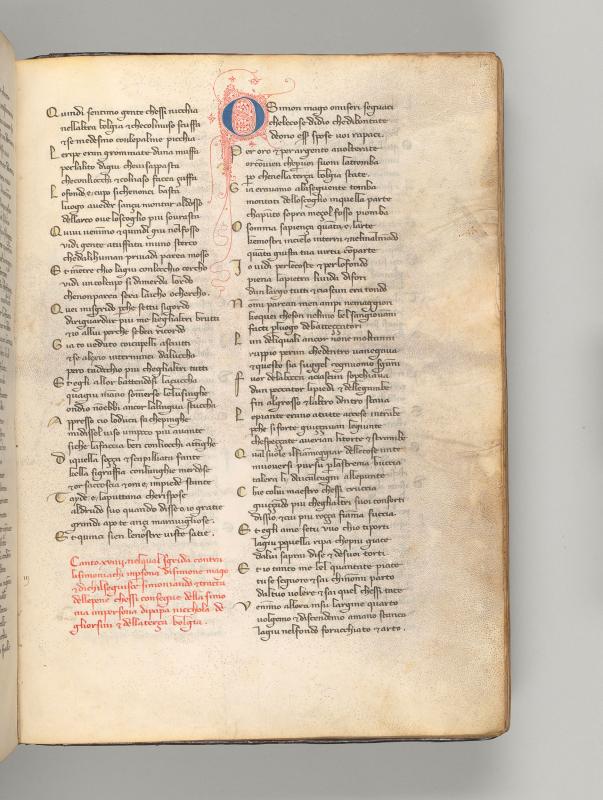 Quindi sentimo gente chessi nicchia
nellaltra bolgia & checolmuso scuffa
& se medesmo conlepalme picchia
Leripe eran grommate duna muffa
perlalito digiu cheuisappasta
checonliocchi & colnaso facea çuffa
Lofondo e cupo sichenonci basta
luogo aueder sança montar aldosso
dellarco oue loscoglio piu sourasta
Quiui uenimo & quindi giu nelfosso
uidi gente atuffata inuno sterco
chedalihuman priuadi parea mosso
E mẽtre chio lagiu conlocchio cercho
uidi uncolcapo si dimerda lordo
chenonparea sera laicho ocherco
Quei misgrido pche settu sigordo
diriguardar piu me cheglialtri brutti
& io allui perche seben ricordo
Gia to ueduto coicapelli asciutti
& se alexo interminei dalucha
pero tadocchio piu cheglialtri tutti
Et egli allor battendosi lacucca
quagiu mano somerse lelusinghe
ondio noebbi ancor lalingua stuccha
Appresso cio loduca fa chepinghe
midissel uiso umpoco piu auante
siche lafaccia ben conliocchi atinghe
Diquella soçça & scapiliata fante
chella sigraffia conlunghie merdose
& or saccoscia & ora e impiede stante
Tayde e laputtana cherispose
aldrudo suo quando disse o io gratie
grandi apo te ançi marauigliose.
Et quinci sien lenostre uiste satie.
Canto.xviiij. nelqual sgrida contra
lisimoniachi inpsona disimone mago
& dichilseguisce simoniando & tracta
dellepene chessi consegue della simo
nia impersona dipapa nicchola de
gliorsini & dellaterça bolgia.
O Simon mago omiseri seguaci
chelecose didio chedibontate
deono essẽ spose uoi rapaci
Per oro & per argento auolterate
orconuien cheperuoi suoni latromba
po chenella terça bolgia state.
Gia erauamo alaseguente tomba
montati delloscoglio inquella parte
chapunto sopra meçol fosso piomba
O somma sapiença quata e larte
chemostri incielo interra & nelmalmõdo
quata giusta tua uirtu cõparte
Io uidi perlecoste & perlofondo
piena lapietra liuida difori
dun largo tutti & ciascun era tondo
Nomi parean men ampi nemaggiori
chequei chesson nelmio bel sangiouanni
facti pluogo debatteççatori
Lun deliquali ancor none moltanni
ruppio perun chedentro uanegaua
& questo sia suggel chogniuomo sganni
Fuor delabocca aciascun sopchiaua
dun peccator lipiedi & dellegambe
fin algrosso & laltro dentro staua
Lepiante erano atutte accese intrabe
pche si forte guiççauan legiunte
chespeççate auerian ritorte & strambe
Qual suole ilfiameggiar dellecose unte
muouersi pursu plastrema buccia
talera li daicalcagni allepunte
Chie colui maestro chessi cruccia
guiççando piu chegliàltri suoi consorti
dissio & cui piu roçça fiama succia
Et egli ame setu vuo chio tiporti
lagiu pquella ripa chepiu giace
dalui saprai dise & desuoi torti
Et io tanto me bel quantate piace
tu se segnore & sai chinomi parto
daltuo uolere & sai quel chessi tace
Venimo allora insu largine quarto
uolgemo & discendemo amano stanca
lagiu nelfondo foracchiato & arto.